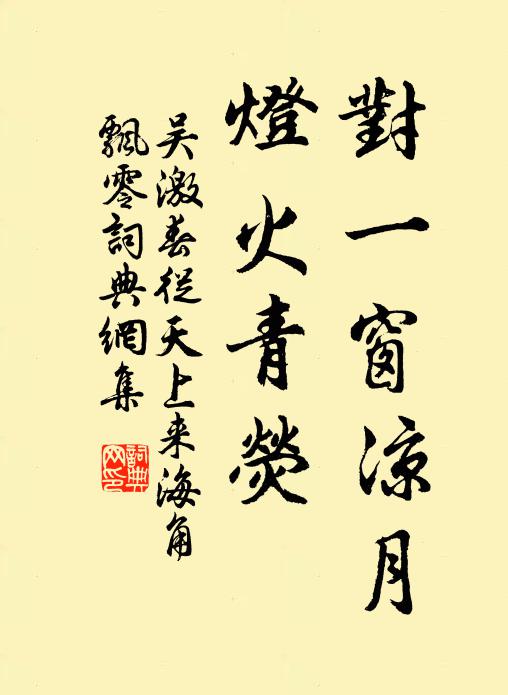 對一窗涼月
燈火青熒
吴激春從天上来海角
飄零詞典網集
詞典网印